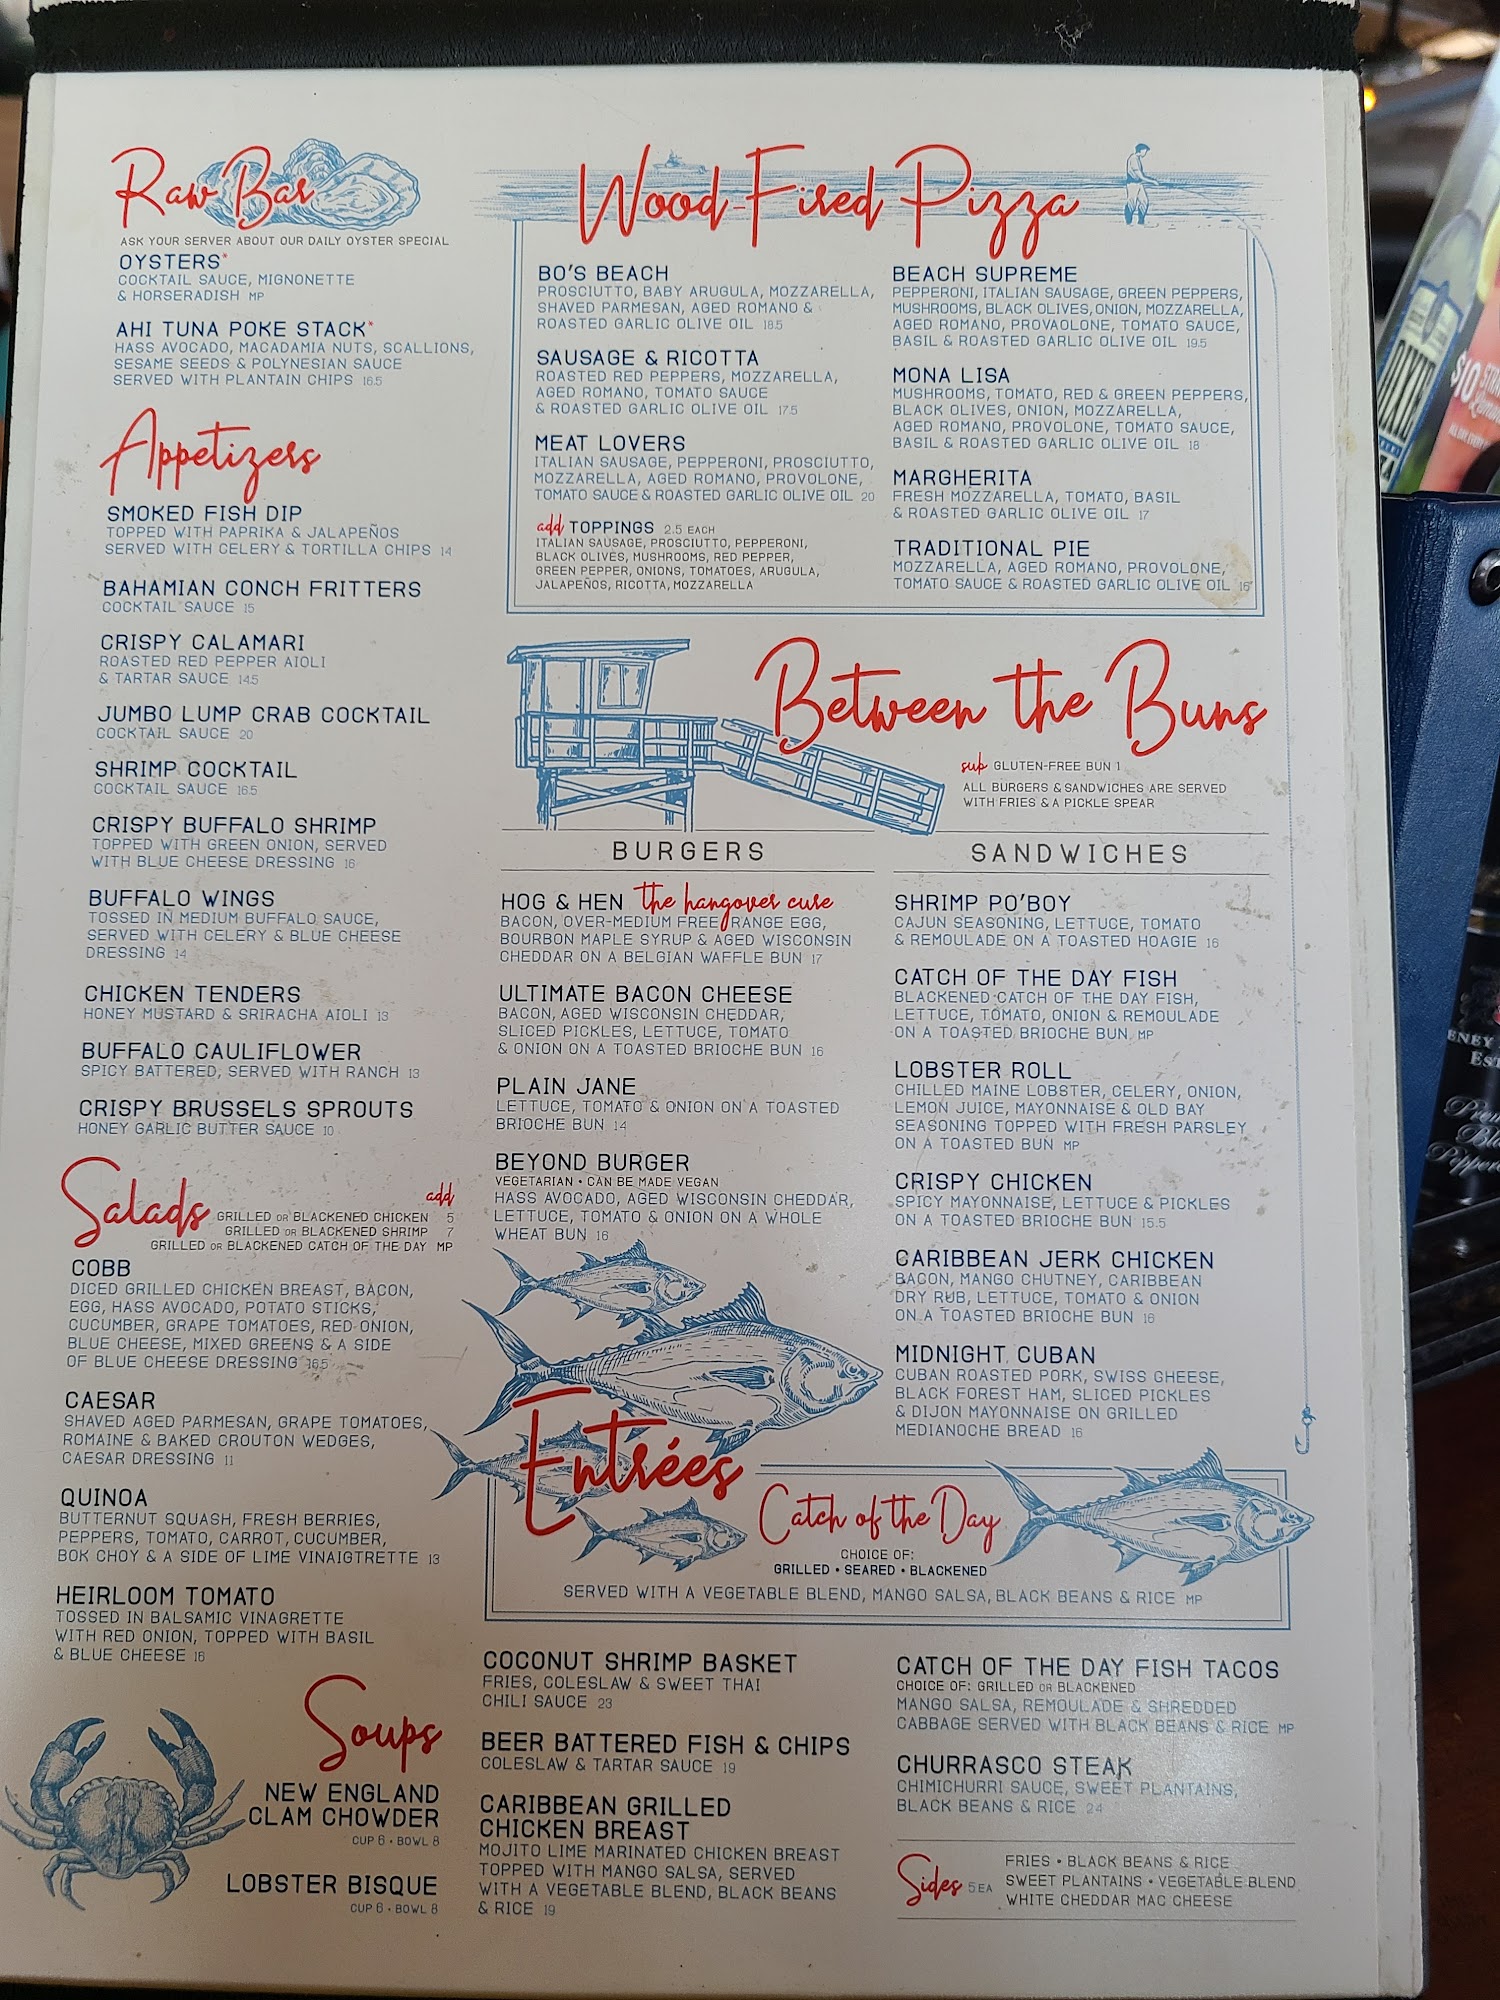 Raw Bar
ASK YOUR SERVER ABOUT OUR DAILY OYSTER SPECIAL
OYSTERS*
COCKTAIL SAUCE, MIGNONETTE
& HORSERADISH MP
AHI TUNA POKE STACK*
HASS AVOCADO, MACADAMIA NUTS, SCALLIONS,
SESAME SEEDS & POLYNESIAN SAUCE
SERVED WITH PLANTAIN CHIPS 16.5
Appetizers
SMOKED FISH DIP
TOPPED WITH PAPRIKA & JALAPEÑOS
SERVED WITH CELERY & TORTILLA CHIPS 14
BAHAMIAN CONCH FRITTERS
COCKTAIL SAUCE 15
CRISPY CALAMARI
ROASTED RED PEPPER AIOLI
& TARTAR SAUCE 14.5
JUMBO LUMP CRAB COCKTAIL
COCKTAIL SAUCE 20
SHRIMP COCKTAIL
COCKTAIL SAUCE 16.5
CRISPY BUFFALO SHRIMP
TOPPED WITH GREEN ONION, SERVED
WITH BLUE CHEESE DRESSING 16
BUFFALO WINGS
TOSSED IN MEDIUM BUFFALO SAUCE,
SERVED WITH CELERY & BLUE CHEESE
DRESSING 14
CHICKEN TENDERS
HONEY MUSTARD & SRIRACHA AIOLI 13
BUFFALO CAULIFLOWER
SPICY BATTERED, SERVED WITH RANCH 13
CRISPY BRUSSELS SPROUTS
HONEY GARLIC BUTTER SAUCE 10
Salads
add
GRILLED OR BLACKENED CHICKEN 5
GRILLED OR BLACKENED SHRIMP 7
GRILLED OR BLACKENED CATCH OF THE DAY MP
COBB
DICED GRILLED CHICKEN BREAST, BACON,
EGG, HASS AVOCADO, POTATO STICKS,
CUCUMBER, GRAPE TOMATOES, RED ONION,
BLUE CHEESE, MIXED GREENS & A SIDE
OF BLUE CHEESE DRESSING 16.5
CAESAR
SHAVED AGED PARMESAN, GRAPE TOMATOES,
ROMAINE & BAKED CROUTON WEDGES,
CAESAR DRESSING 11
QUINOA
BUTTERNUT SQUASH, FRESH BERRIES,
PEPPERS, TOMATO, CARROT, CUCUMBER,
BOK CHOY & A SIDE OF LIME VINAIGTRETTE 13
HEIRLOOM TOMATO
TOSSED IN BALSAMIC VINAGRETTE
WITH RED ONION, TOPPED WITH BASIL
& BLUE CHEESE 16
Soups
NEW ENGLAND
CLAM CHOWDER
CUP 6 • BOWL 8
LOBSTER BISQUE
CUP 6 • BOWL 8
Wood-Fired Pizza
BO'S BEACH
PROSCIUTTO, BABY ARUGULA, MOZZARELLA,
SHAVED PARMESAN, AGED ROMANO &
ROASTED GARLIC OLIVE OIL 18.5
SAUSAGE & RICOTTA
ROASTED RED PEPPERS, MOZZARELLA,
AGED ROMANO, TOMATO SAUCE
& ROASTED GARLIC OLIVE OIL 17.5
MEAT LOVERS
ITALIAN SAUSAGE, PEPPERONI, PROSCIUTTO,
MOZZARELLA, AGED ROMANO, PROVOLONE,
TOMATO SAUCE & ROASTED GARLIC OLIVE OIL 20
add TOPPINGS 2.5 EACH
ITALIAN SAUSAGE, PROSCIUTTO, PEPPERONI,
BLACK OLIVES, MUSHROOMS, RED PEPPER,
GREEN PEPPER, ONIONS, TOMATOES, ARUGULA,
JALAPEÑOS, RICOTTA, MOZZARELLA
BEACH SUPREME
PEPPERONI, ITALIAN SAUSAGE, GREEN PEPPERS,
MUSHROOMS, BLACK OLIVES, ONION, MOZZARELLA,
AGED ROMANO, PROVAOLONE, TOMATO SAUCE,
BASIL & ROASTED GARLIC OLIVE OIL 19.5
MONA LISA
MUSHROOMS, TOMATO, RED & GREEN PEPPERS,
BLACK OLIVES, ONION, MOZZARELLA,
AGED ROMANO, PROVOLONE, TOMATO SAUCE,
BASIL & ROASTED GARLIC OLIVE OIL 18
MARGHERITA
FRESH MOZZARELLA, TOMATO, BASIL
& ROASTED GARLIC OLIVE OIL 17
TRADITIONAL PIE
MOZZARELLA, AGED ROMANO, PROVOLONE,
TOMATO SAUCE & ROASTED GARLIC OLIVE OIL 16
Between the Buns
sub GLUTEN-FREE BUN 1
ALL BURGERS & SANDWICHES ARE SERVED
WITH FRIES & A PICKLE SPEAR
BURGERS
HOG & HEN the hangover cure
BACON, OVER-MEDIUM FREE RANGE EGG,
BOURBON MAPLE SYRUP & AGED WISCONSIN
CHEDDAR ON A BELGIAN WAFFLE BUN 17
ULTIMATE BACON CHEESE
BACON, AGED WISCONSIN CHEDDAR,
SLICED PICKLES, LETTUCE, TOMATO
& ONION ON A TOASTED BRIOCHE BUN 16
PLAIN JANE
LETTUCE, TOMATO & ONION ON A TOASTED
BRIOCHE BUN 14
BEYOND BURGER
VEGETARIAN • CAN BE MADE VEGAN
HASS AVOCADO, AGED WISCONSIN CHEDDAR,
LETTUCE, TOMATO & ONION ON A WHOLE
WHEAT BUN 16
SANDWICHES
SHRIMP PO'BOY
CAJUN SEASONING, LETTUCE, TOMATO
& REMOULADE ON A TOASTED HOAGIE 16
CATCH OF THE DAY FISH
BLACKENED CATCH OF THE DAY FISH,
LETTUCE, TOMATO, ONION & REMOULADE
ON A TOASTED BRIOCHE BUN MP
LOBSTER ROLL
CHILLED MAINE LOBSTER, CELERY, ONION,
LEMON JUICE, MAYONNAISE & OLD BAY
SEASONING TOPPED WITH FRESH PARSLEY
ON A TOASTED BUN MP
CRISPY CHICKEN
SPICY MAYONNAISE, LETTUCE & PICKLES
ON A TOASTED BRIOCHE BUN 15.5
CARIBBEAN JERK CHICKEN
BACON, MANGO CHUTNEY, CARIBBEAN
DRY RUB, LETTUCE, TOMATO & ONION
ON A TOASTED BRIOCHE BUN 16
MIDNIGHT CUBAN
CUBAN ROASTED PORK, SWISS CHEESE,
BLACK FOREST HAM, SLICED PICKLES
& DIJON MAYONNAISE ON GRILLED
MEDIANOCHE BREAD 16
Entrées
Catch of the Day
CHOICE OF:
GRILLED • SEARED • BLACKENED
SERVED WITH A VEGETABLE BLEND, MANGO SALSA, BLACK BEANS & RICE MP
COCONUT SHRIMP BASKET
FRIES, COLESLAW & SWEET THAI
CHILI SAUCE 23
BEER BATTERED FISH & CHIPS
COLESLAW & TARTAR SAUCE 19
CARIBBEAN GRILLED
CHICKEN BREAST
MOJITO LIME MARINATED CHICKEN BREAST
TOPPED WITH MANGO SALSA, SERVED
WITH A VEGETABLE BLEND, BLACK BEANS
& RICE 19
CATCH OF THE DAY FISH TACOS
CHOICE OF: GRILLED OR BLACKENED
MANGO SALSA, REMOULADE & SHREDDED
CABBAGE SERVED WITH BLACK BEANS & RICE MP
CHURRASCO STEAK
CHIMICHURRI SAUCE, SWEET PLANTAINS,
BLACK BEANS & RICE 24
Sides 5 EA
FRIES • BLACK BEANS & RICE
SWEET PLANTAINS • VEGETABLE BLEND
WHITE CHEDDAR MAC CHEESE
$10